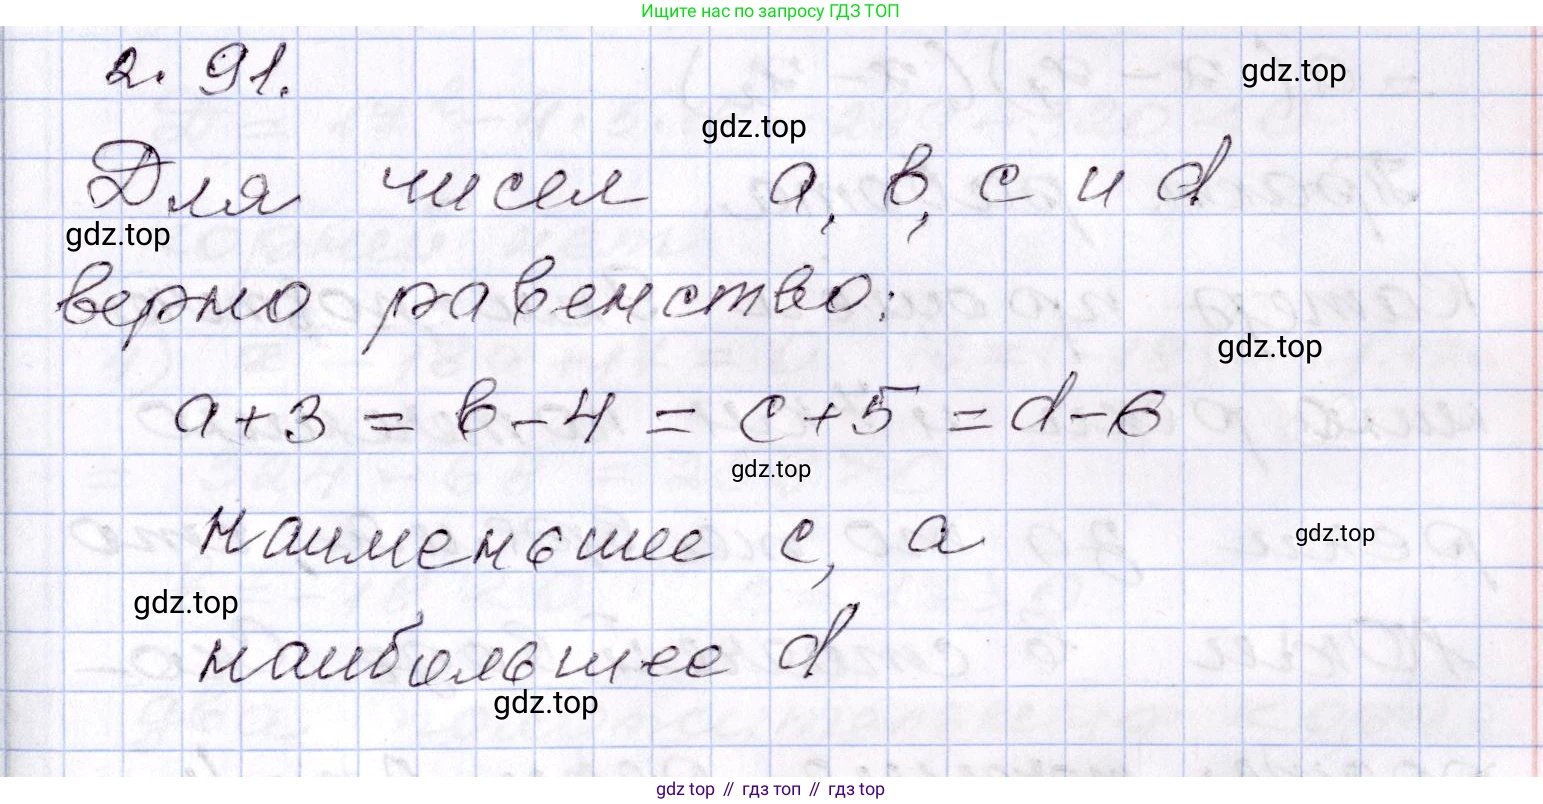 Ищите нас по запросу ГДЗ ТОП
2.91.
gdz.top
gdz.top
Для чисел a, b, c и d
gdz.top
верно равенство:
gdz.top
a+3 = b-4 = c+5 = d-6
gdz.top
наименьшее c, a
gdz.top
gdz.top
наибольшее d
gdz.top
gdz top // гдз топ // гдз top